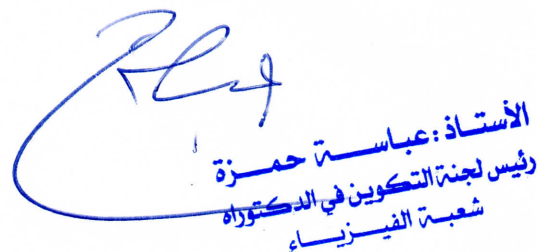 الأستاذ : عباسة حمزة
رئيس لجنة التكوين في الدكتوراه
شعبة الفيزياء